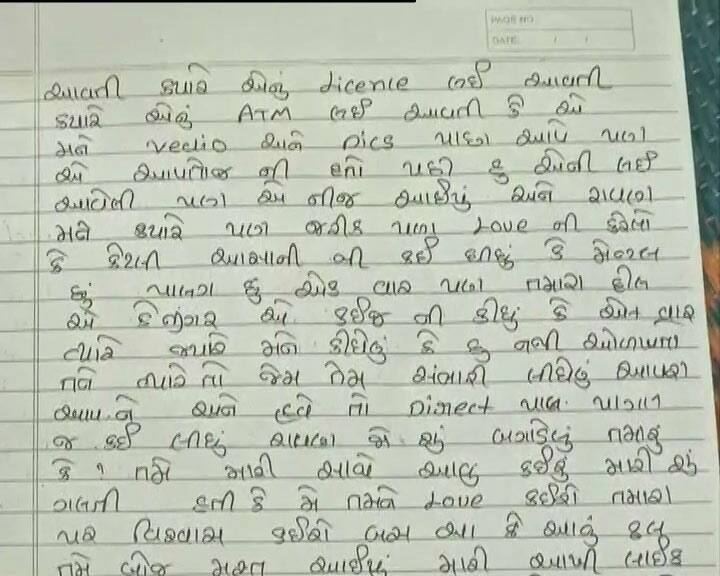 PAGE NO
DATE: / /
આવતી કયારે એનું Licence લઈ આવતી
કયારે એનું ATM લઈ આવતી કે એ
મને Vedio અને Pics પાછા આપે પણ
એ આપતોજ ની હતો પછી હુ એની લઈ
આવેલી પણ એ નીજ આઈપું અને રાવણ
મને કયારે પણ જરીક પણ Love ની કરેલો
કે કેટલી આસાની થી કઈ દીધું કે મેન્ટલ
છું પાગલ છુ એક વાર પણ તમારા દીલ
એ કે એ કઈજ ની કીધું કે એક વાર
ત્યારે જયારે મને કીધેલું કે હુ નથી ઓળખતા
તને ત્યારે તો જેમ તેમ સંભાળી લીધેલું આપણા
આપ ને અને હવે તો Direct પાગલ
જ કઈ દીધું રાવણ મે શું બગાડેલું તમારું
કે ? તમે મારી સાથે આવુ કઈરું મારી શું
ગલતી હતી કે મે તમને Love કઈરો તમારા
પર વિશ્વાસ કઈરો બસ આ કે આવું
તમે મારી લાઈફ